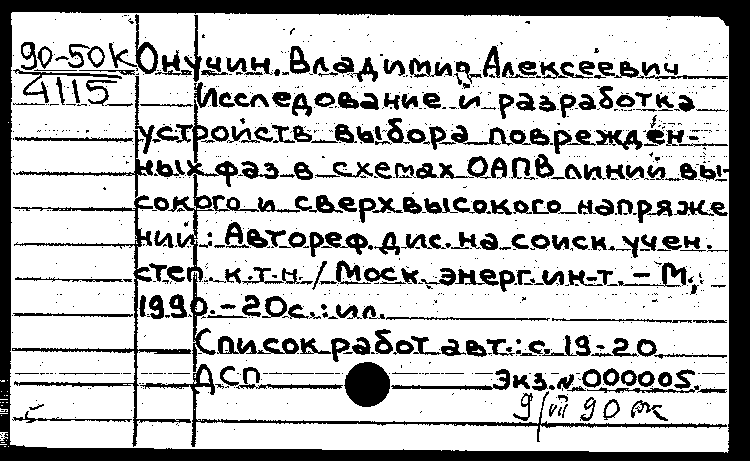 90-50К Онучин, Владимир Алексеевич
4115
Исследование и разработка
устройств выбора поврежден-
ных фаз в схемах ОАПВ линий вы-
сокого и сверхвысокого напряже
ний : Автореф. дис. на соиск. учен.
степ. к.т.н. / Моск. энерг. ин-т. – М.,
1990. – 20с. : ил.
Список работ авт.: с. 19-20
ДСП Экз. № 000005.
9/VII 90
5